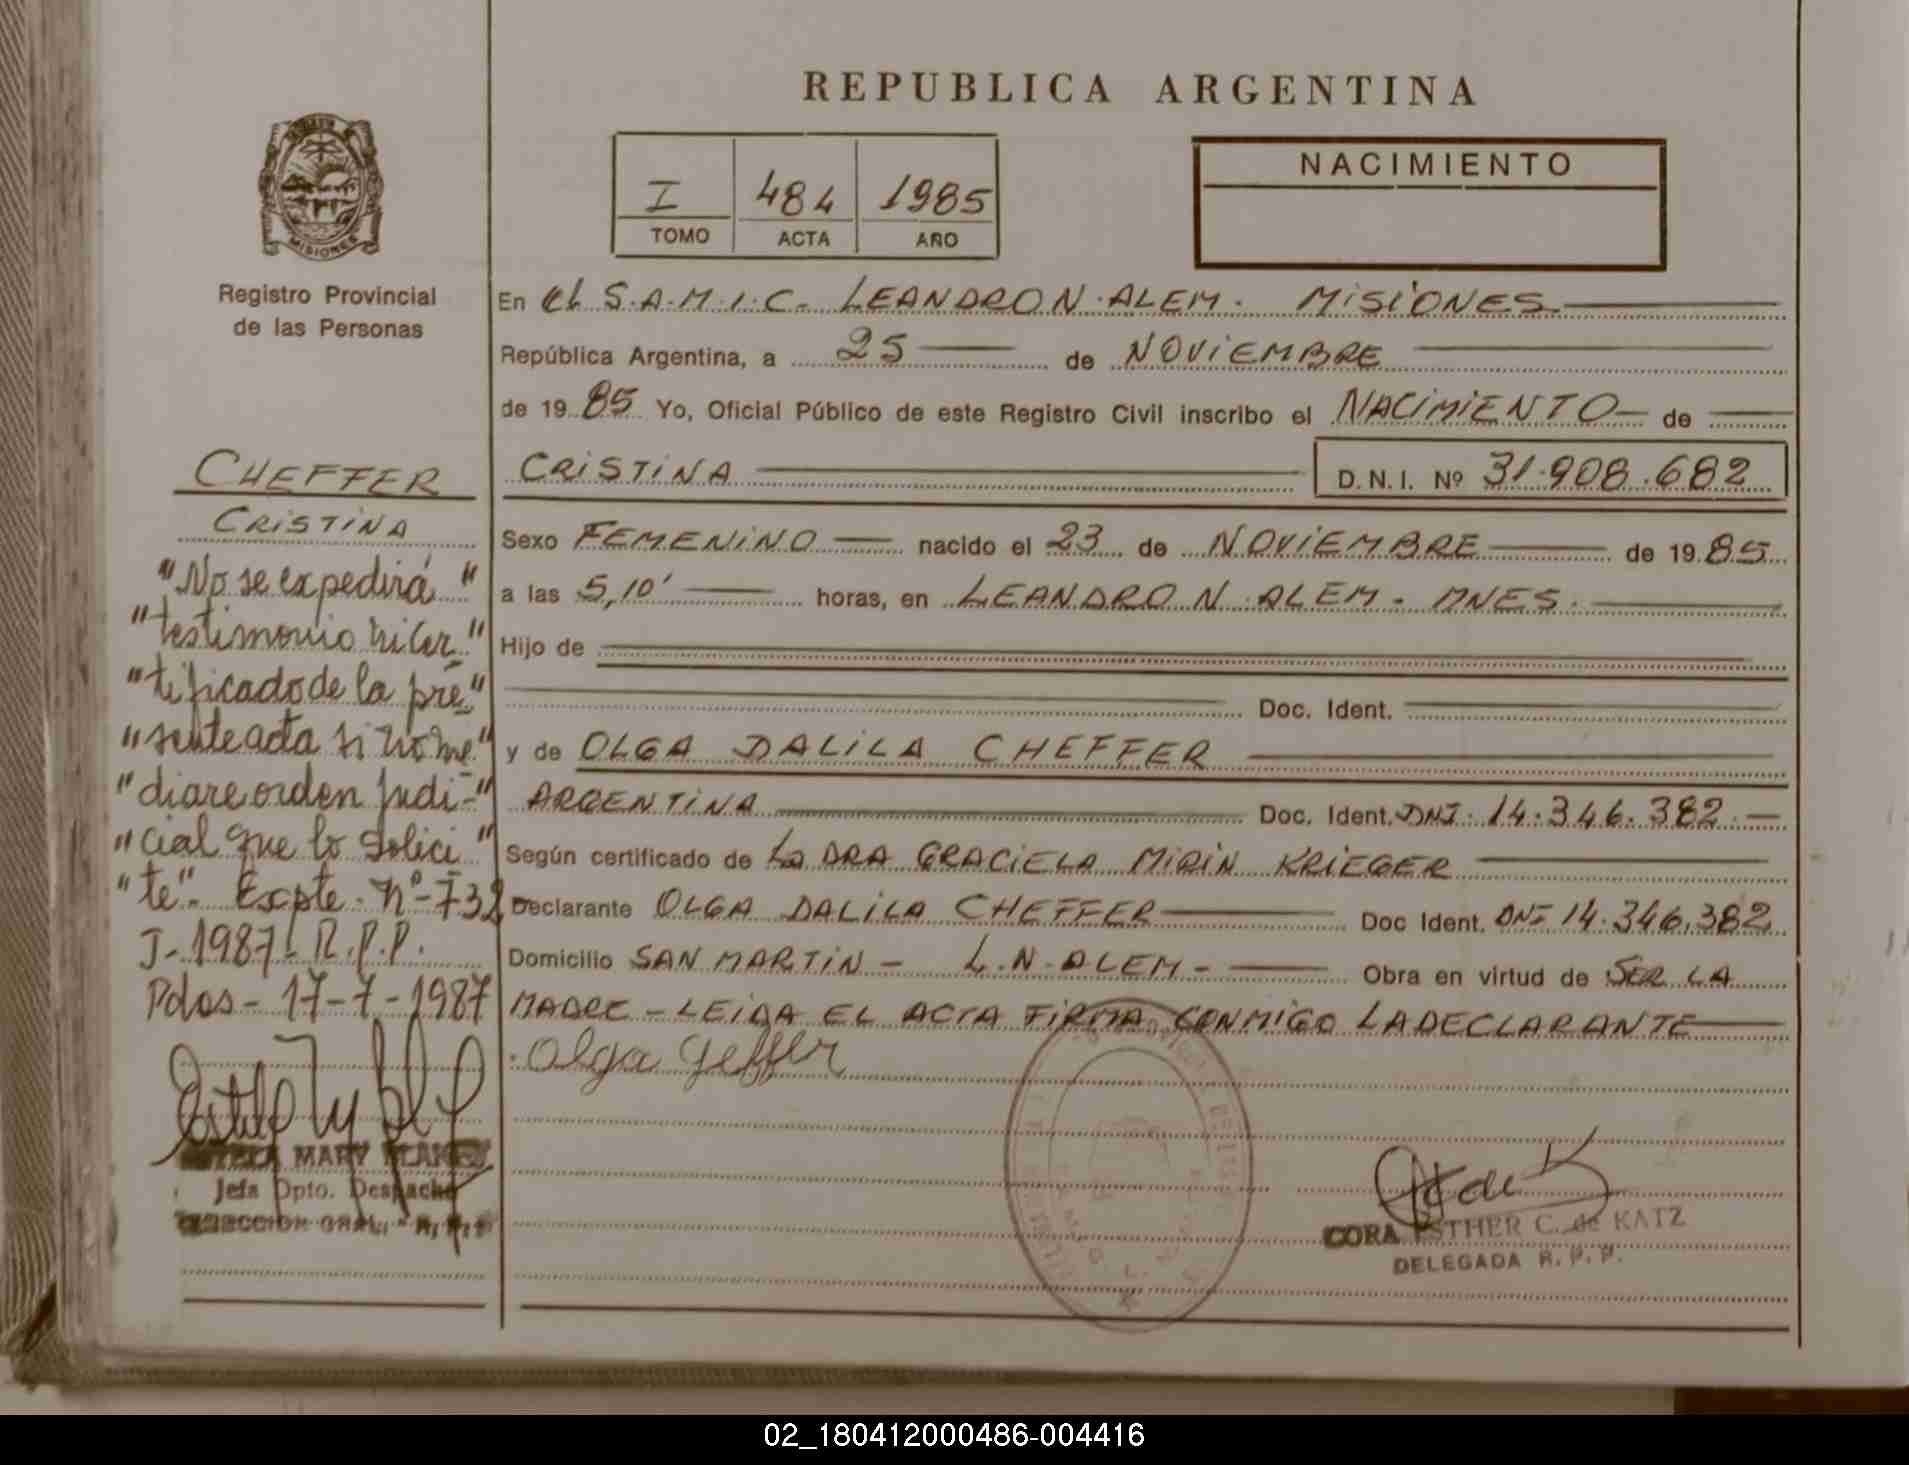 REPUBLICA ARGENTINA
MISIONES
Registro Provincial
de las Personas
I 484 1985
TOMO ACTA AÑO
NACIMIENTO
CHEFFER
CRISTINA
"No se expedirá"
"testimonio ni cer"
"tificado de la pre"
"sente acta si no me"
"diare orden judi-"
"cial que lo solici"
"te". Expte. nº-732-
J-1987- R.P.P.
Pdas- 17-7-1987
MARY
Jefa Dpto. Despacho
DIRECCION GRAL. R.P.P.
En el S.A.M.I.C- LEANDRO N. ALEM. MISIONES
República Argentina, a 25 de NOVIEMBRE
de 19 85 Yo, Oficial Público de este Registro Civil inscribo el NACIMIENTO de
CRISTINA D.N.I. Nº 31.908.682
Sexo FEMENINO nacido el 23 de NOVIEMBRE de 19 85
a las 5,10' horas, en LEANDRO N. ALEM- MNES.
Hijo de
Doc. Ident.
y de OLGA DALILA CHEFFER
ARGENTINA Doc. Ident. DNI. 14.346.382.-
Según certificado de La DRA GRACIELA MIRIN KRIEGER
Declarante OLGA DALILA CHEFFER Doc Ident. DNI 14.346.382
Domicilio SAN MARTIN - L.N.ALEM- Obra en virtud de SER LA
MADRE - LEIDA EL ACTA FIRMA CONMIGO LA DECLARANTE
Olga Geffer
CORA ESTHER C. de KATZ
DELEGADA R.P.P.
02_180412000486-004416